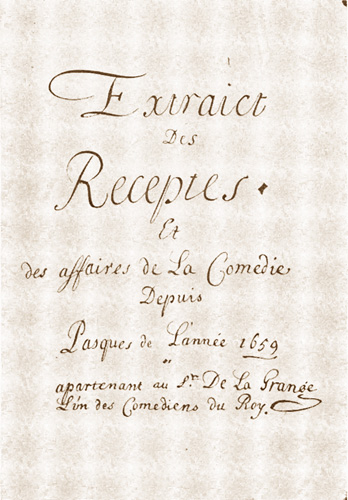 Extraict
Des
Receptes.
Et
des affaires de La Comedie
Depuis
Pasques de L'année 1659
"
apartenant au Sr. De La Grange
L'un des Comediens du Roy.